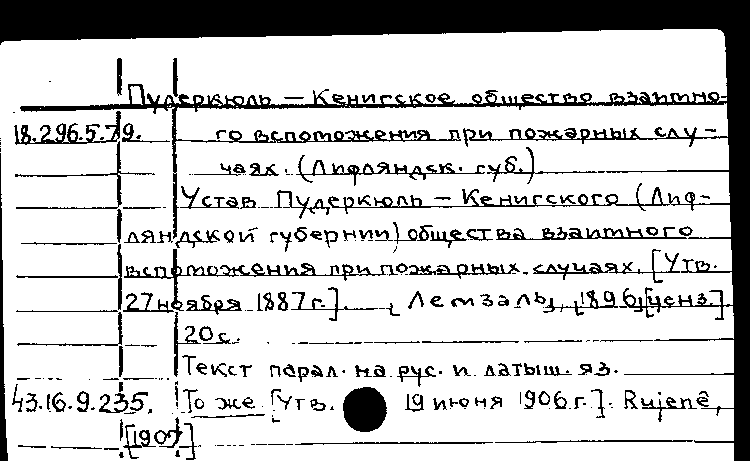 Пудеркюль — Кенигское общество взаимно-
18.296.5.79. го вспоможения при пожарных слу-
чаях. (Лифляндск. губ.).
Устав Пудеркюль — Кенигского (Лиф-
ляндской губернии) общества взаимного
вспоможения при пожарных случаях. [Утв.
27 ноября 1887 г.]. [Лемзаль], [1896] [ценз.].
20 с.
Текст парал. на рус. и латыш. яз.
43.16.9.235. То же [Утв. 19 июня 1906 г.]. Rujenē,
[1907]